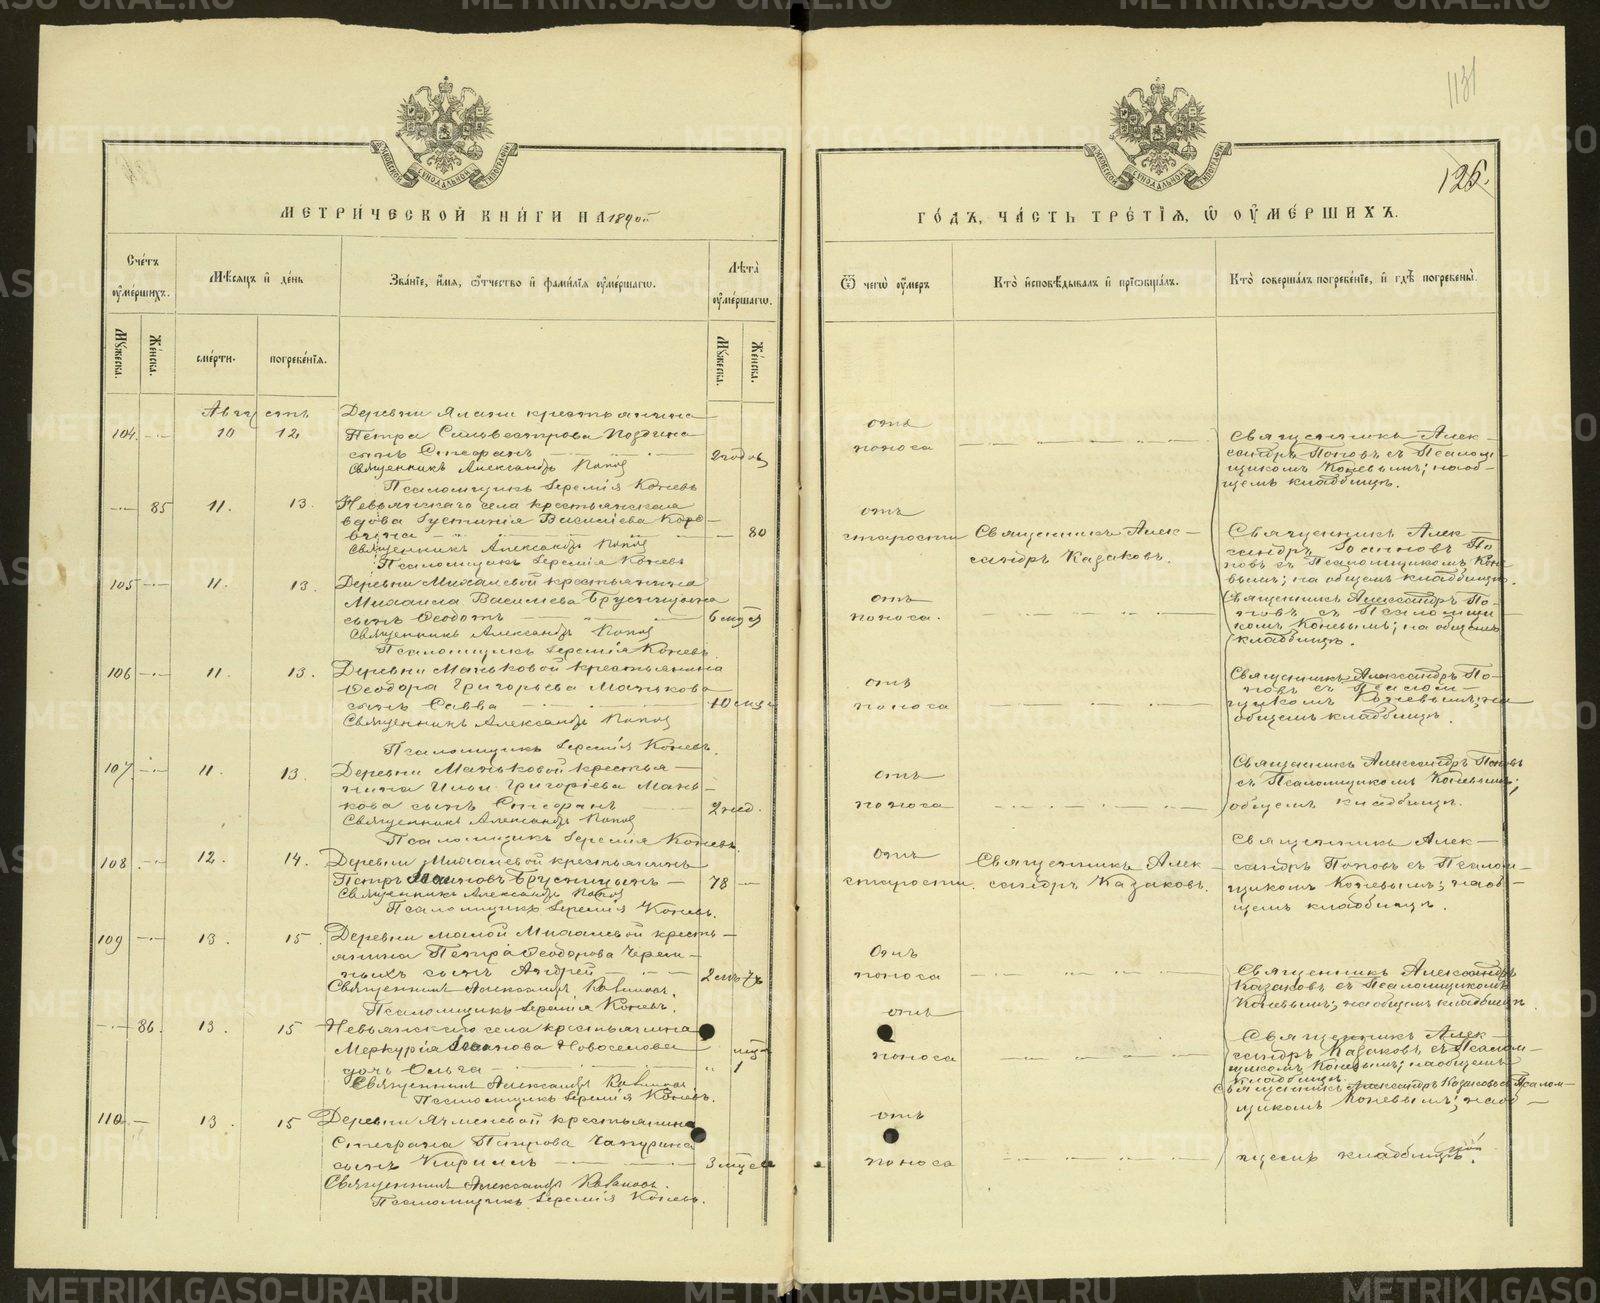 1131
125.
МЕТРИ́ЧЕСКОЙ КНИ́ГИ НА 1890й
ГО́ДЪ, ЧА́СТЬ ТРЕ́ТІѦ, Ѿ ОУМЕ́РШИХЪ.
Сче́тъ оуме́ршихъ.
Мѣ́сяцъ и де́нь
Зва́ніе, и́мѧ, ѻ́тчество и фами́лїѧ оуме́ршагѡ.
Лѣ́та оуме́ршагѡ.
Ѿ чегѡ̀ оу́меръ
Кто̀ исповѣ́дывалъ и прїѡбща́лъ.
Кто̀ соверша́лъ погребе́нїе, и гдѣ̀ погребены̀.
Мꙋ́жеска.
Же́нска.
сме́рти.
погребе́нїѧ.
Мꙋ́жеска.
Же́нска.
Августъ
Деревни Ялани крестьянина
104 10 12 Петра Сильвестрова Поздина
сынъ Стефанъ 2 годовъ
Священникъ Александръ Поповъ
Псаломщикъ Іеремія Коневъ
отъ
поноса
Священникъ Алек-
сандръ Поповъ съ Псалом-
щикомъ Коневымъ; на об-
щемъ кладбищѣ.
85 11. 13. Невьянскаго села крестьянская
вдова Густинія Василіева
80
Священникъ Александръ Поповъ
Псаломщикъ Іеремія Коневъ
отъ
старости
Священникъ Алек-
сандръ Казаковъ.
Священникъ Алек-
сандръ Іоанновъ По-
повъ съ Псаломщикомъ Коне-
вымъ; на общемъ кладбищѣ.
105 11. 13. Деревни Михалевой крестьянина
Михаила Василіева Брусницына
сынъ Ѳеодотъ
Священникъ Александръ Поповъ
Псаломщикъ Іеремія Коневъ.
отъ
поноса.
Священникъ Александръ По-
повъ съ Псаломщи-
комъ Коневымъ; на общемъ
кладбищѣ.
106 11. 13. Деревни Маньковой крестьянина
Ѳеодора Григорьева Манькова
сынъ Савва
Священникъ Александръ Поповъ
Псаломщикъ Іеремія Коневъ.
отъ
поноса
Священникъ Александръ По-
повъ съ Псалом-
щикомъ Коневымъ; на
общемъ кладбищѣ.
107 11. 13. Деревни Маньковой крестья-
нина Ильи Григоріева Мань-
кова сынъ Стефанъ 2 нед.
Священникъ Александръ Поповъ
Псаломщикъ Іеремія Коневъ.
отъ
поноса
Священникъ Александръ Поповъ
съ Псаломщикомъ Коневымъ;
общемъ кладбищѣ.
108 12. 14. Деревни Михалевой крестьянинъ
Петръ Іоанновъ Брусницынъ 78
Священникъ Александръ Поповъ
Псаломщикъ Іеремія Коневъ.
отъ
старости.
Священникъ Алек-
сандръ Казаковъ.
Священникъ Алек-
сандръ Поповъ съ Псалом-
щикомъ Коневымъ; на об-
щемъ кладбищѣ.
109 13. 15. Деревни малой Михалевой кресть-
янина Петра Ѳеодорова Черем-
ныхъ сынъ Андрей
Священникъ Александръ Казаковъ.
Псаломщикъ Іеремія Коневъ.
Отъ
поноса
Священникъ Александръ
Казаковъ съ Псаломщикомъ
Коневымъ; на общемъ кладбищѣ.
86. 13. 15 Невьянскаго села крестьянина
Меркурія Іоанова Новоселова
дочь Ольга 1
Священникъ Александръ Казаковъ.
Псаломщикъ Іеремія Коневъ.
отъ
поноса
Священникъ Алек-
сандръ Казаковъ съ Псалом-
щикомъ Коневымъ; на общемъ
кладбищѣ.
110 13. 15 Деревни Ячменевой крестьянина
Стефана Петрова Чапурина
сынъ Кириллъ
Священникъ Александръ Казаковъ.
Псаломщикъ Іеремія Коневъ.
отъ
поноса
Священникъ Александръ Казаковъ съ Псалом-
щикомъ Коневымъ; на об-
щемъ кладбищѣ.
METRIKI.GASO-URAL.RU